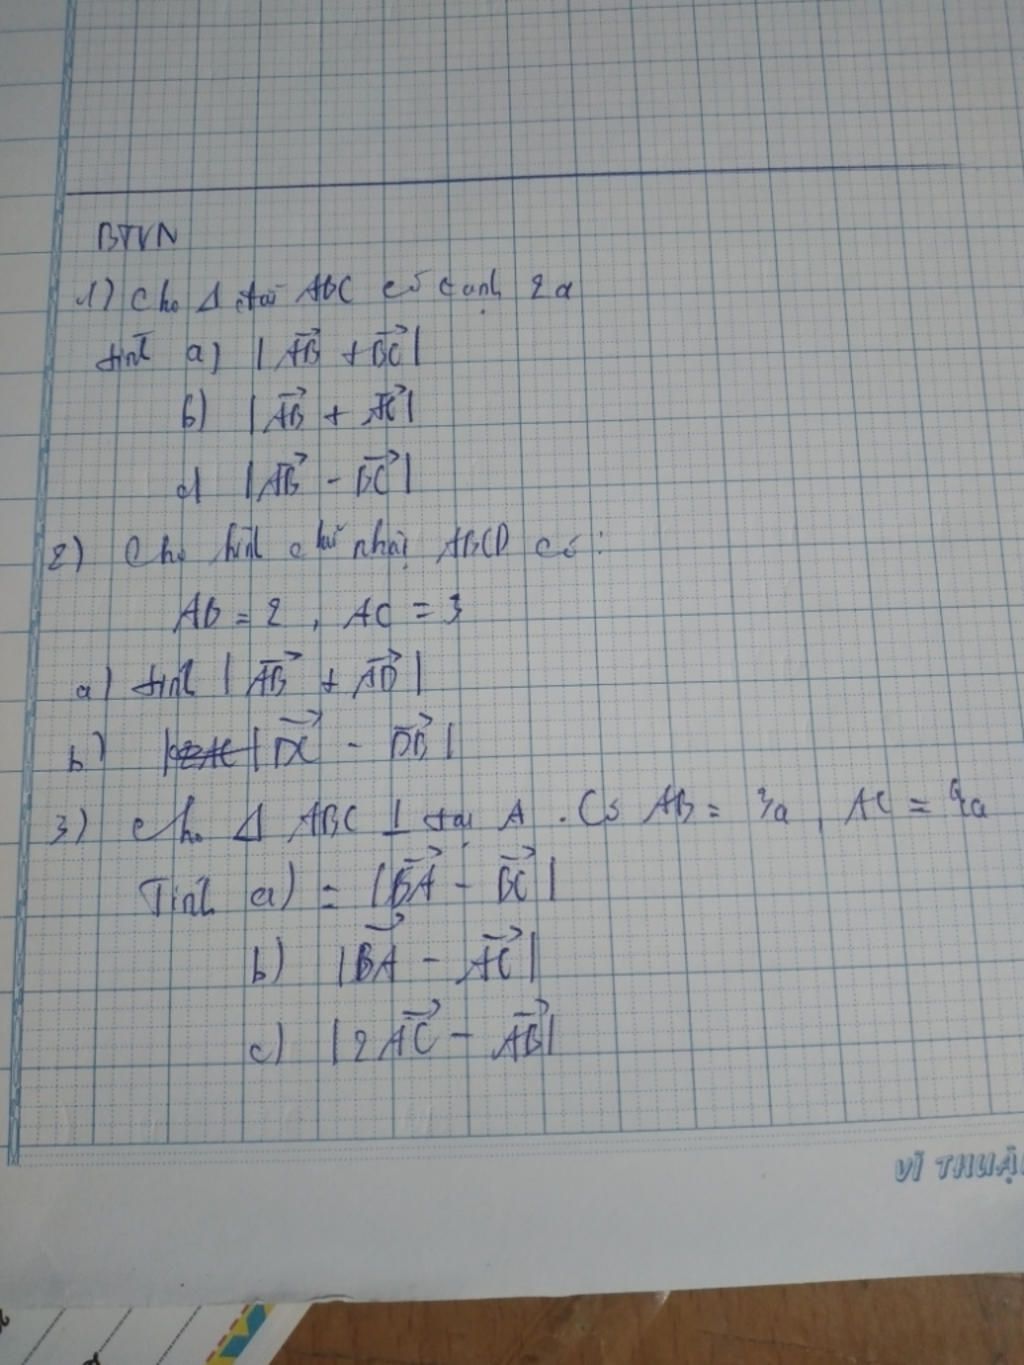 BTVN
1) Cho Δ đều ABC có cạnh 2a
tính a) |AB→ + BC→|
b) |AB→ + AC→|
c) |AB→ - BC→|
2) Cho hình chữ nhật ABCD có:
AB = 2, AC = 3
a) tính |AB→ + AD→|
b) |DC→ - DB→|
3) Cho Δ ABC ⊥ tại A. Có AB = 3a, AC = 4a
Tính a) = |BA→ - BC→|
b) |BA→ - AC→|
c) |2AC→ - AB→|
VĨ THUẬ